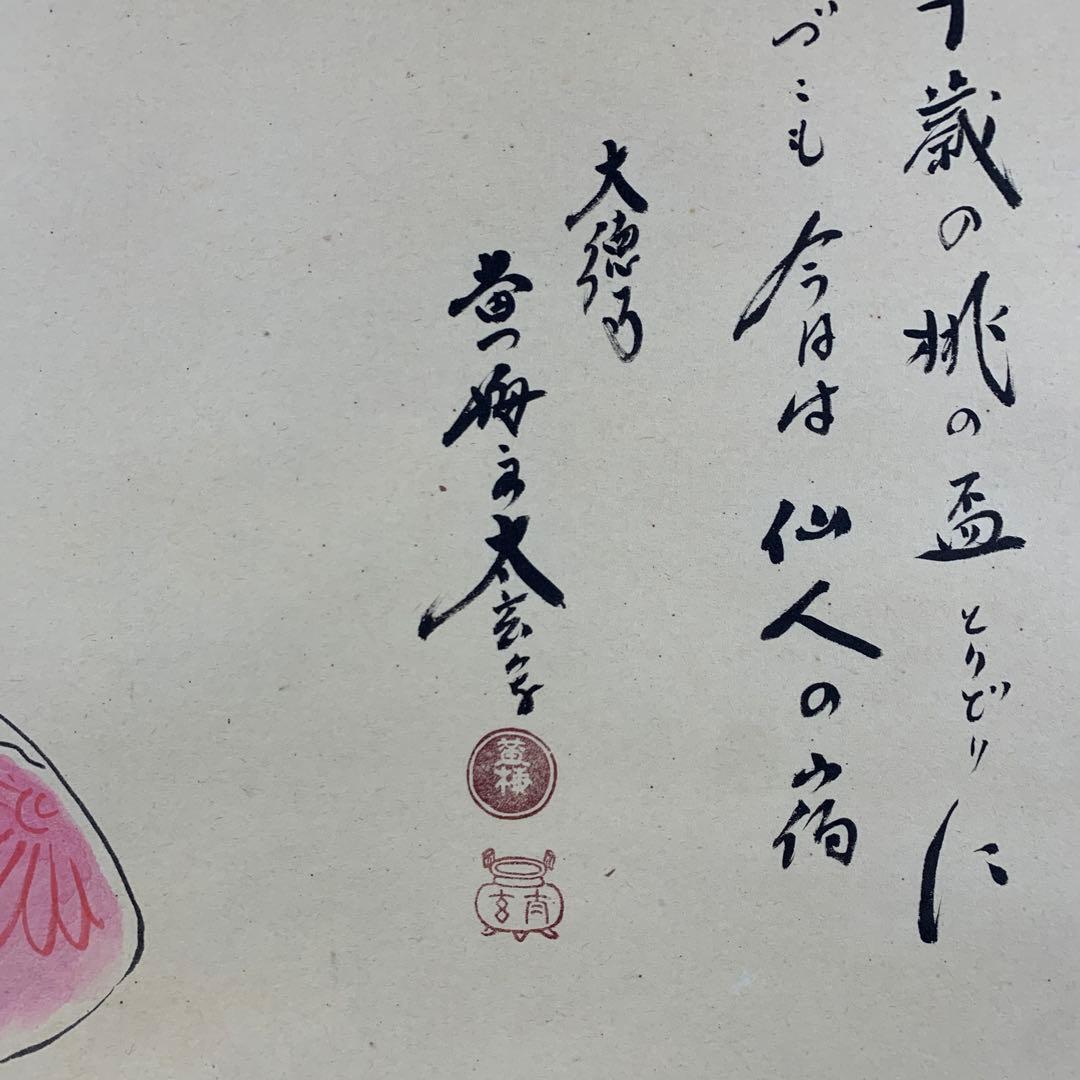 千歳の桃の盃とりどりに
づこも今日は仙人の宿
大徳乃
黄梅主太玄書
黄梅
太玄